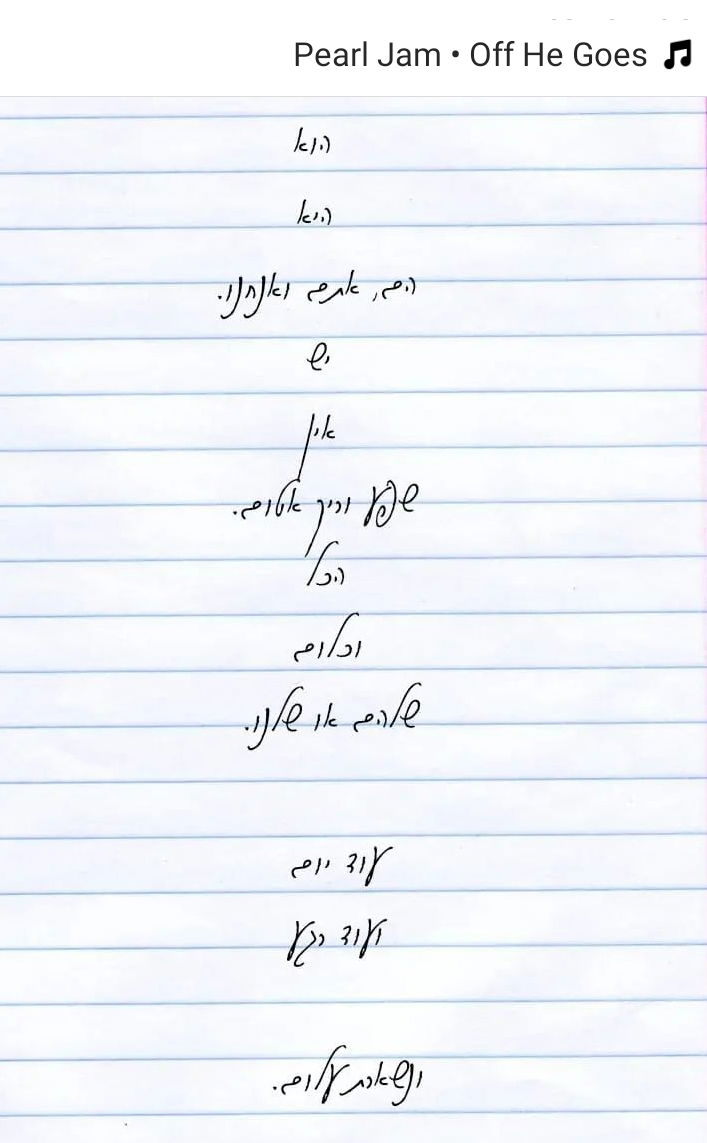 Pearl Jam • Off He Goes
הוא
היא
הם, אתם ואנחנו.
יש
אין
שפע וריק אטום.
הכל
וכלום
שלהם או שלנו.
עוד יום
ועוד רגע
ונשארת עלום.